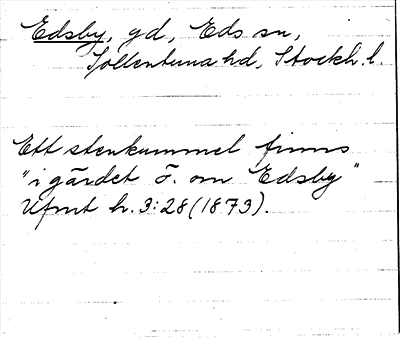 Edsby, gd, Eds sn,
Sollentuna hd, Stockh. l.
Ett stenkummel finns
"i gärdet ö. om Edsby"
Ufmt h. 3:28 (1873).